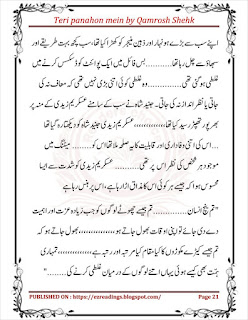 Teri panahon mein by Qamrosh Shehk
اپنے سب سے بڑے ہونہار اور ذہین منیجر کو کھڑا کیا تھا،سب کچھ بہت طریقے اور
سبھاؤ سے چل رہا تھا۔۔۔۔۔۔۔۔۔ بس فائل میں ایک پوائنٹ کو ڈسکس کرنے میں
غلطی ہو گئی تھی ۔۔۔۔۔۔۔۔ وہ غلطی کوئی اتنی بڑی نہیں تھی کہ معاف نہ کی
جاتی یا نظر انداز نہ کی جاتی۔ جنید شاہ نے سب کے سامنے عسکریم زیدی کے منہ پر
بھرپور تھپڑ رسید کیا تھا،،،،،،،،،،، عسکریم زیدی جنید شاہ کو دیکھتا رہ گیا تھا
... اس کی اتنی وفاداری اور قابلیت کا یہ صلہ ملا تھا اس کو ............. میٹنگ میں
موجود ہر شخص کی نظر اس پر تھی ............ عسکریم زیدی کو شدت سے ایسا
محسوس ہوا کہ جیسے ہر کوئی اس کا مذاق اڑا رہا ہے، اس پر ہنس رہا ہے
"تم بیچ انسان............ تم جیسے چھوٹے لوگوں کو جب زیادہ عزت اور اہمیت
دے دی جائے تو اپنی اوقات بھول جاتے ہو،،،،،،،،،، تم یہ بھول جاتے ہو کہ
تم جیسے کیڑے مکوڑوں کا کیا مقام کیا مرتبہ اور رتبہ ہے،،،،،،،،،،،،،،، تمہاری
ہمت بھی کیسے ہوئی یہاں اتنے لوگوں کے درمیان غلطی کرنے کی.............."
PUBLISHED ON : https://ezreadings.blogspot.com/
Page 21